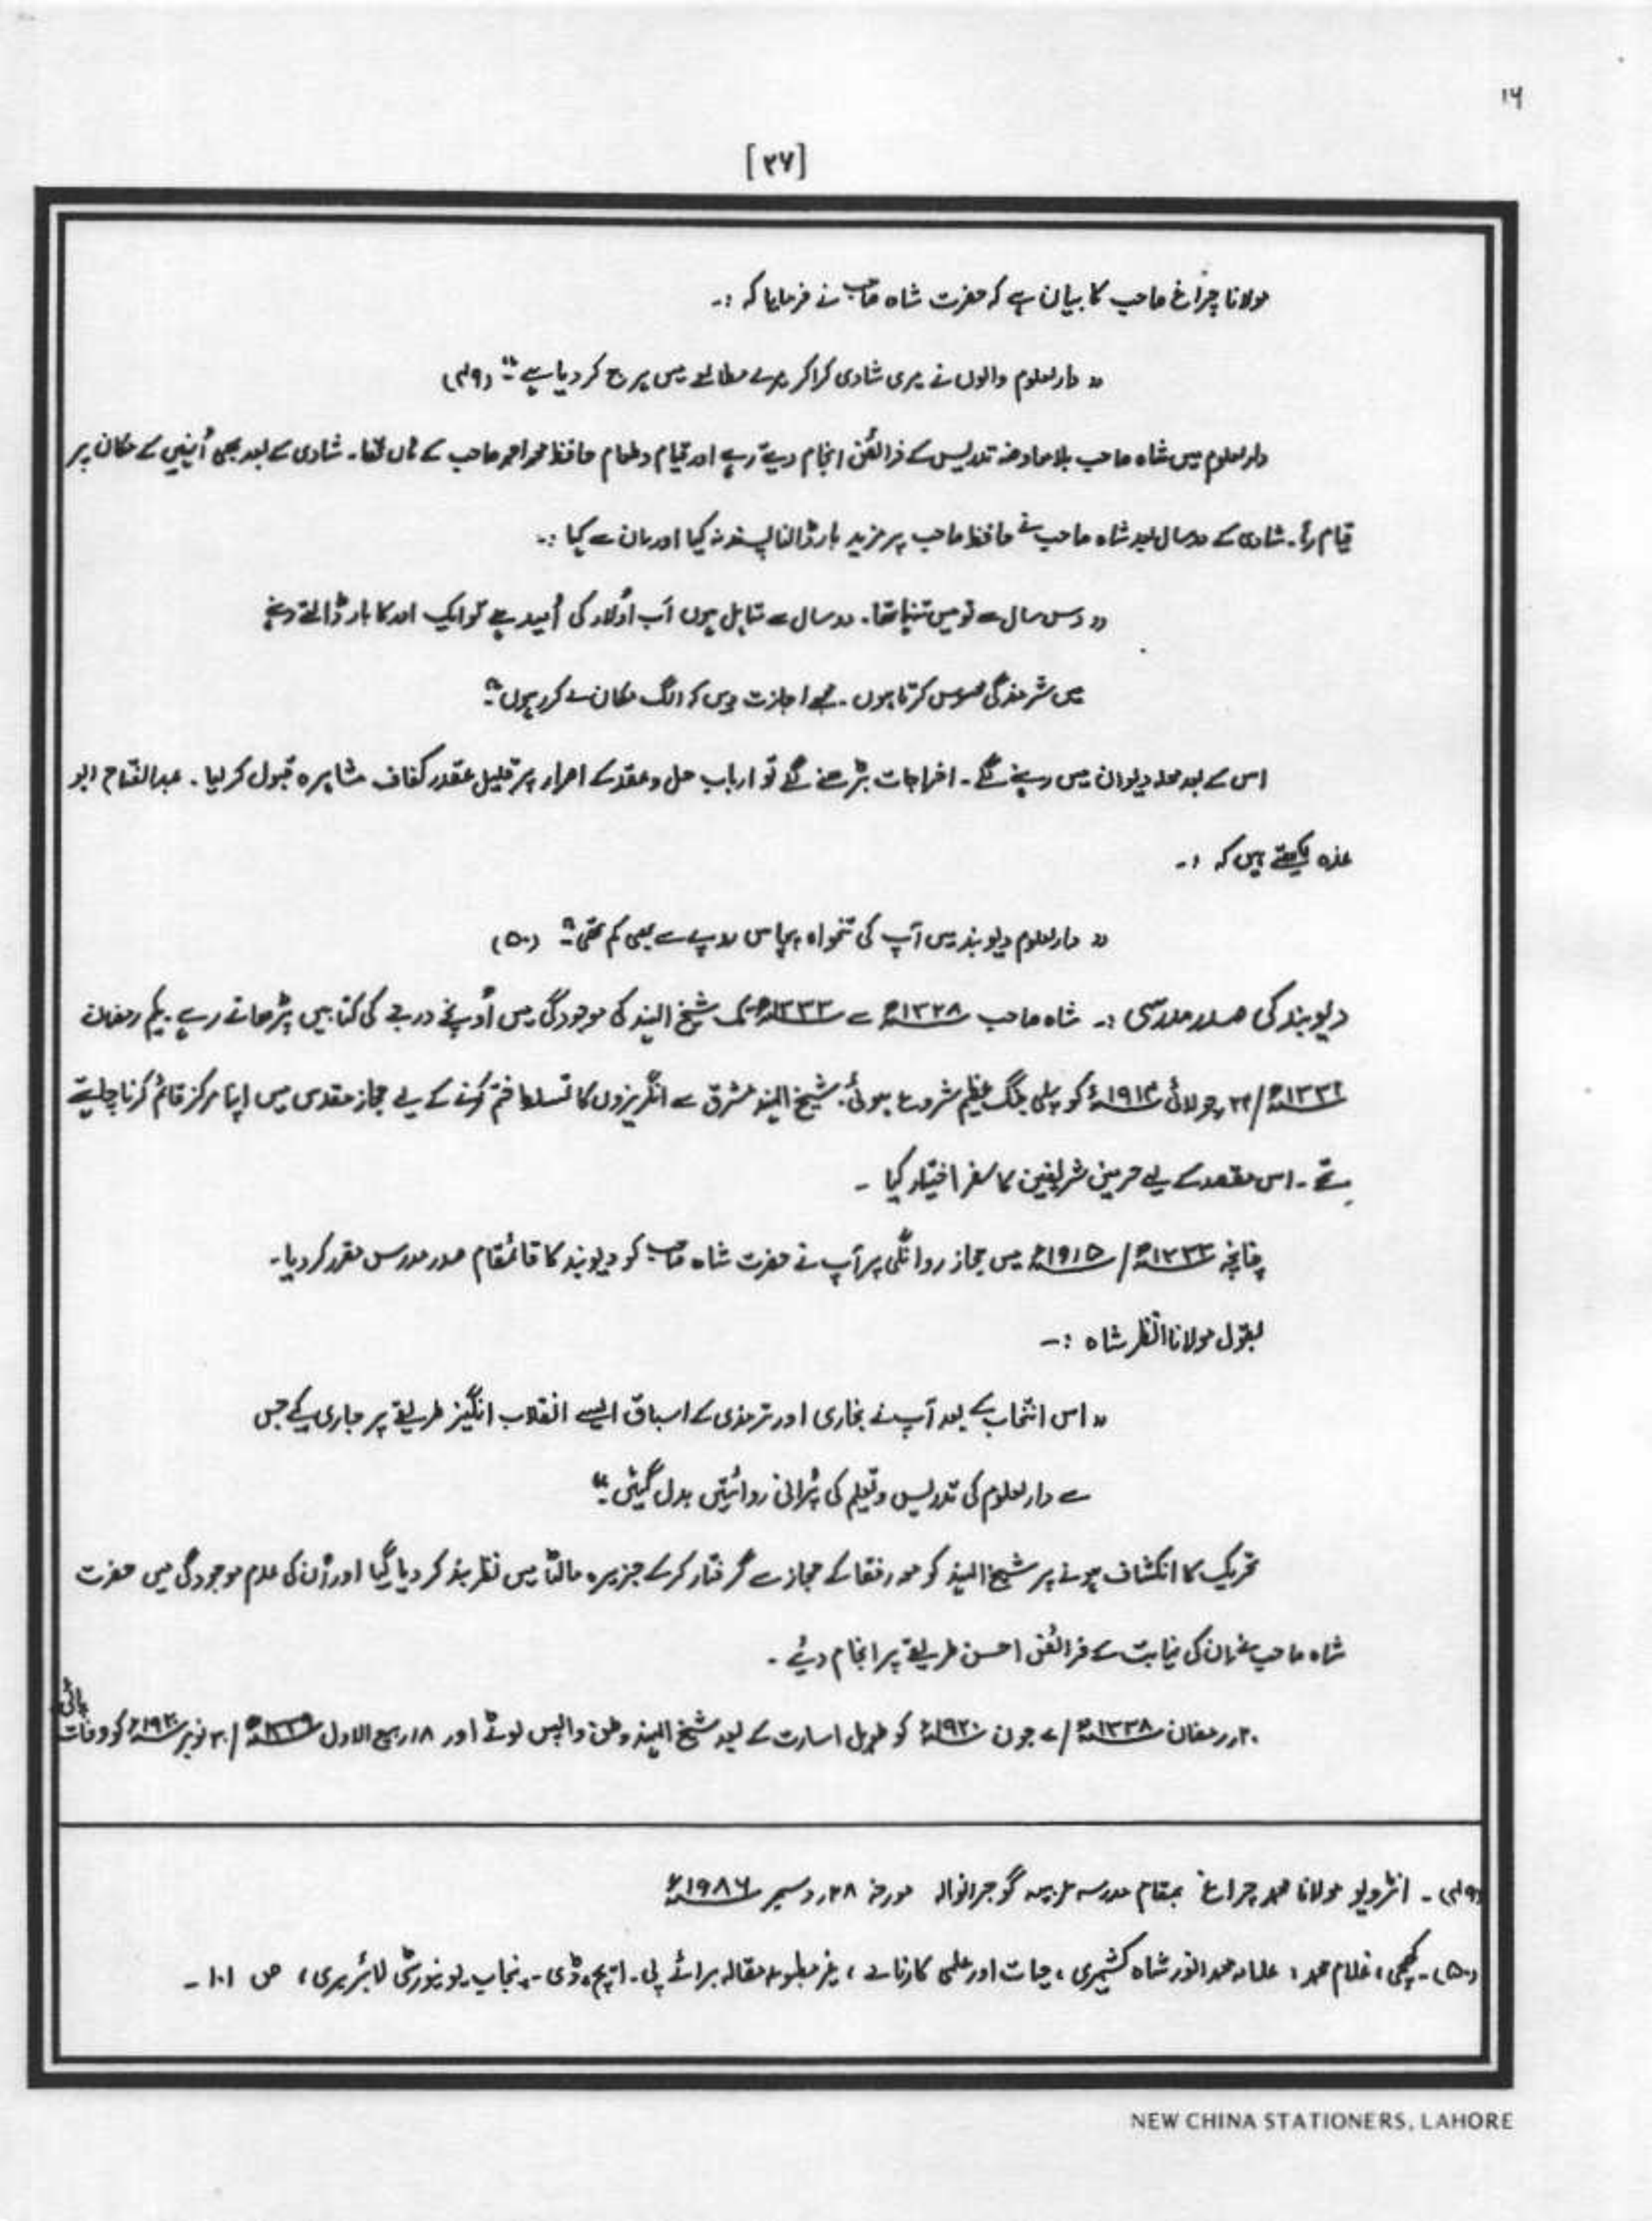 ۱۶
[۳۶]
مولانا چراغ صاحب کا بیان ہے کہ حضرت شاہ صاحب نے فرمایا کہ :۔
"دارلعلوم والوں نے میری شادی کرا کر میرے مطالعے میں ہرج کر دیا ہے" (۴۹)
دارلعلوم میں شاہ صاحب بلامعاوضہ تدریس کے فرائض انجام دیتے رہے اور قیام و طعام حافظ محمد احمد صاحب کے ہاں تھا۔ شادی کے بعد بھی اُنہیں کے مکان پر
قیام رہا۔ شادی کے دوسال بعد شاہ صاحب نے حافظ صاحب پر مزید بار ڈالنا پسند نہ کیا اور ان سے کہا :۔
"دس سال سے تو میں تنہا تھا۔ دو سال سے متاہل ہوں اَب اَولاد کی اُمید ہے تو ایک اور کا بار ڈالتے ہوئے
میں شرمندگی محسوس کرتا ہوں۔ مجھے اجازت دیں کہ الگ مکان لے کر رہوں"
اس کے بعد محلہ دیوان میں رہنے لگے۔ اخراجات بڑھنے لگے تو ارباب حل و عقد کے اصرار پر قلیل بقدر کفاف مشاہرہ قبول کر لیا۔ عبدالفتاح ابو
غدہ لکھتے ہیں کہ :۔
"دارلعلوم دیوبند میں آپ کی تنخواہ پچاس روپے سے بھی کم تھی" (۵۰)
دیوبند کی صدر مدرسی :۔ شاہ صاحب ۱۳۲۸ھ سے ۱۳۳۳ھ تک شیخ الہند کی موجودگی میں اُونچے درجے کی کتابیں پڑھاتے رہے۔ یکم رمضان
۱۳۳۲ھ/۲۴ جولائی ۱۹۱۴ء کو پہلی جنگ عظیم شروع ہوئی۔ شیخ الہند مشرق سے انگریزوں کا تسلط ختم کرنے کے لیے حجاز مقدس میں اپنا مرکز قائم کرنا چاہتے
تھے۔ اس مقصد کے لیے حرمین شریفین کا سفر اختیار کیا ۔
چنانچہ ۱۳۳۳ھ/۱۹۱۵ء میں حجاز روانگی پر آپ نے حضرت شاہ صاحب کو دیوبند کا قائمقام صدر مدرس مقرر کر دیا۔
بقول مولانا انظر شاہ :۔
"اس انتخاب کے بعد آپ نے بخاری اور ترمذی کے اسباق ایسے انقلاب انگیز طریقے پر جاری کیے جس
سے دارلعلوم کی تدریس و تعلیم کی پُرانی روائیتیں بدل گئیں"
تحریک کا انکشاف ہونے پر شیخ الہند کو معہ رفقا کے حجاز سے گرفتار کرکے جزیرہ مالٹا میں نظر بند کر دیا گیا اور اُن کی عدم موجودگی میں حضرت
شاہ صاحب نے ان کی نیابت کے فرائض احسن طریقے پر انجام دیئے ۔
۲۰ رمضان ۱۳۳۸ھ/۷ جون ۱۹۲۰ء کو طویل اسارت کے بعد شیخ الہند وطن واپس لوٹے اور ۱۸ ربیع الاول ۱۳۳۹ھ/۳۰ نومبر ۱۹۲۰ء کو وفات پائی
(۴۹)۔ انٹرویو مولانا محمد چراغ بمقام مدرسہ عربیہ گوجرانوالہ مورخہ ۲۸ دسمبر ۱۹۸۶ء
(۵۰)۔ کچھی، غلام محمد، علامہ محمد انور شاہ کشمیری، حیات اور علمی کارنامے، غیر مطبوعہ مقالہ برائے پی۔ ایچ۔ ڈی۔ پنجاب یونیورسٹی لائبریری، ص ۱۰۱ ۔
NEW CHINA STATIONERS, LAHORE